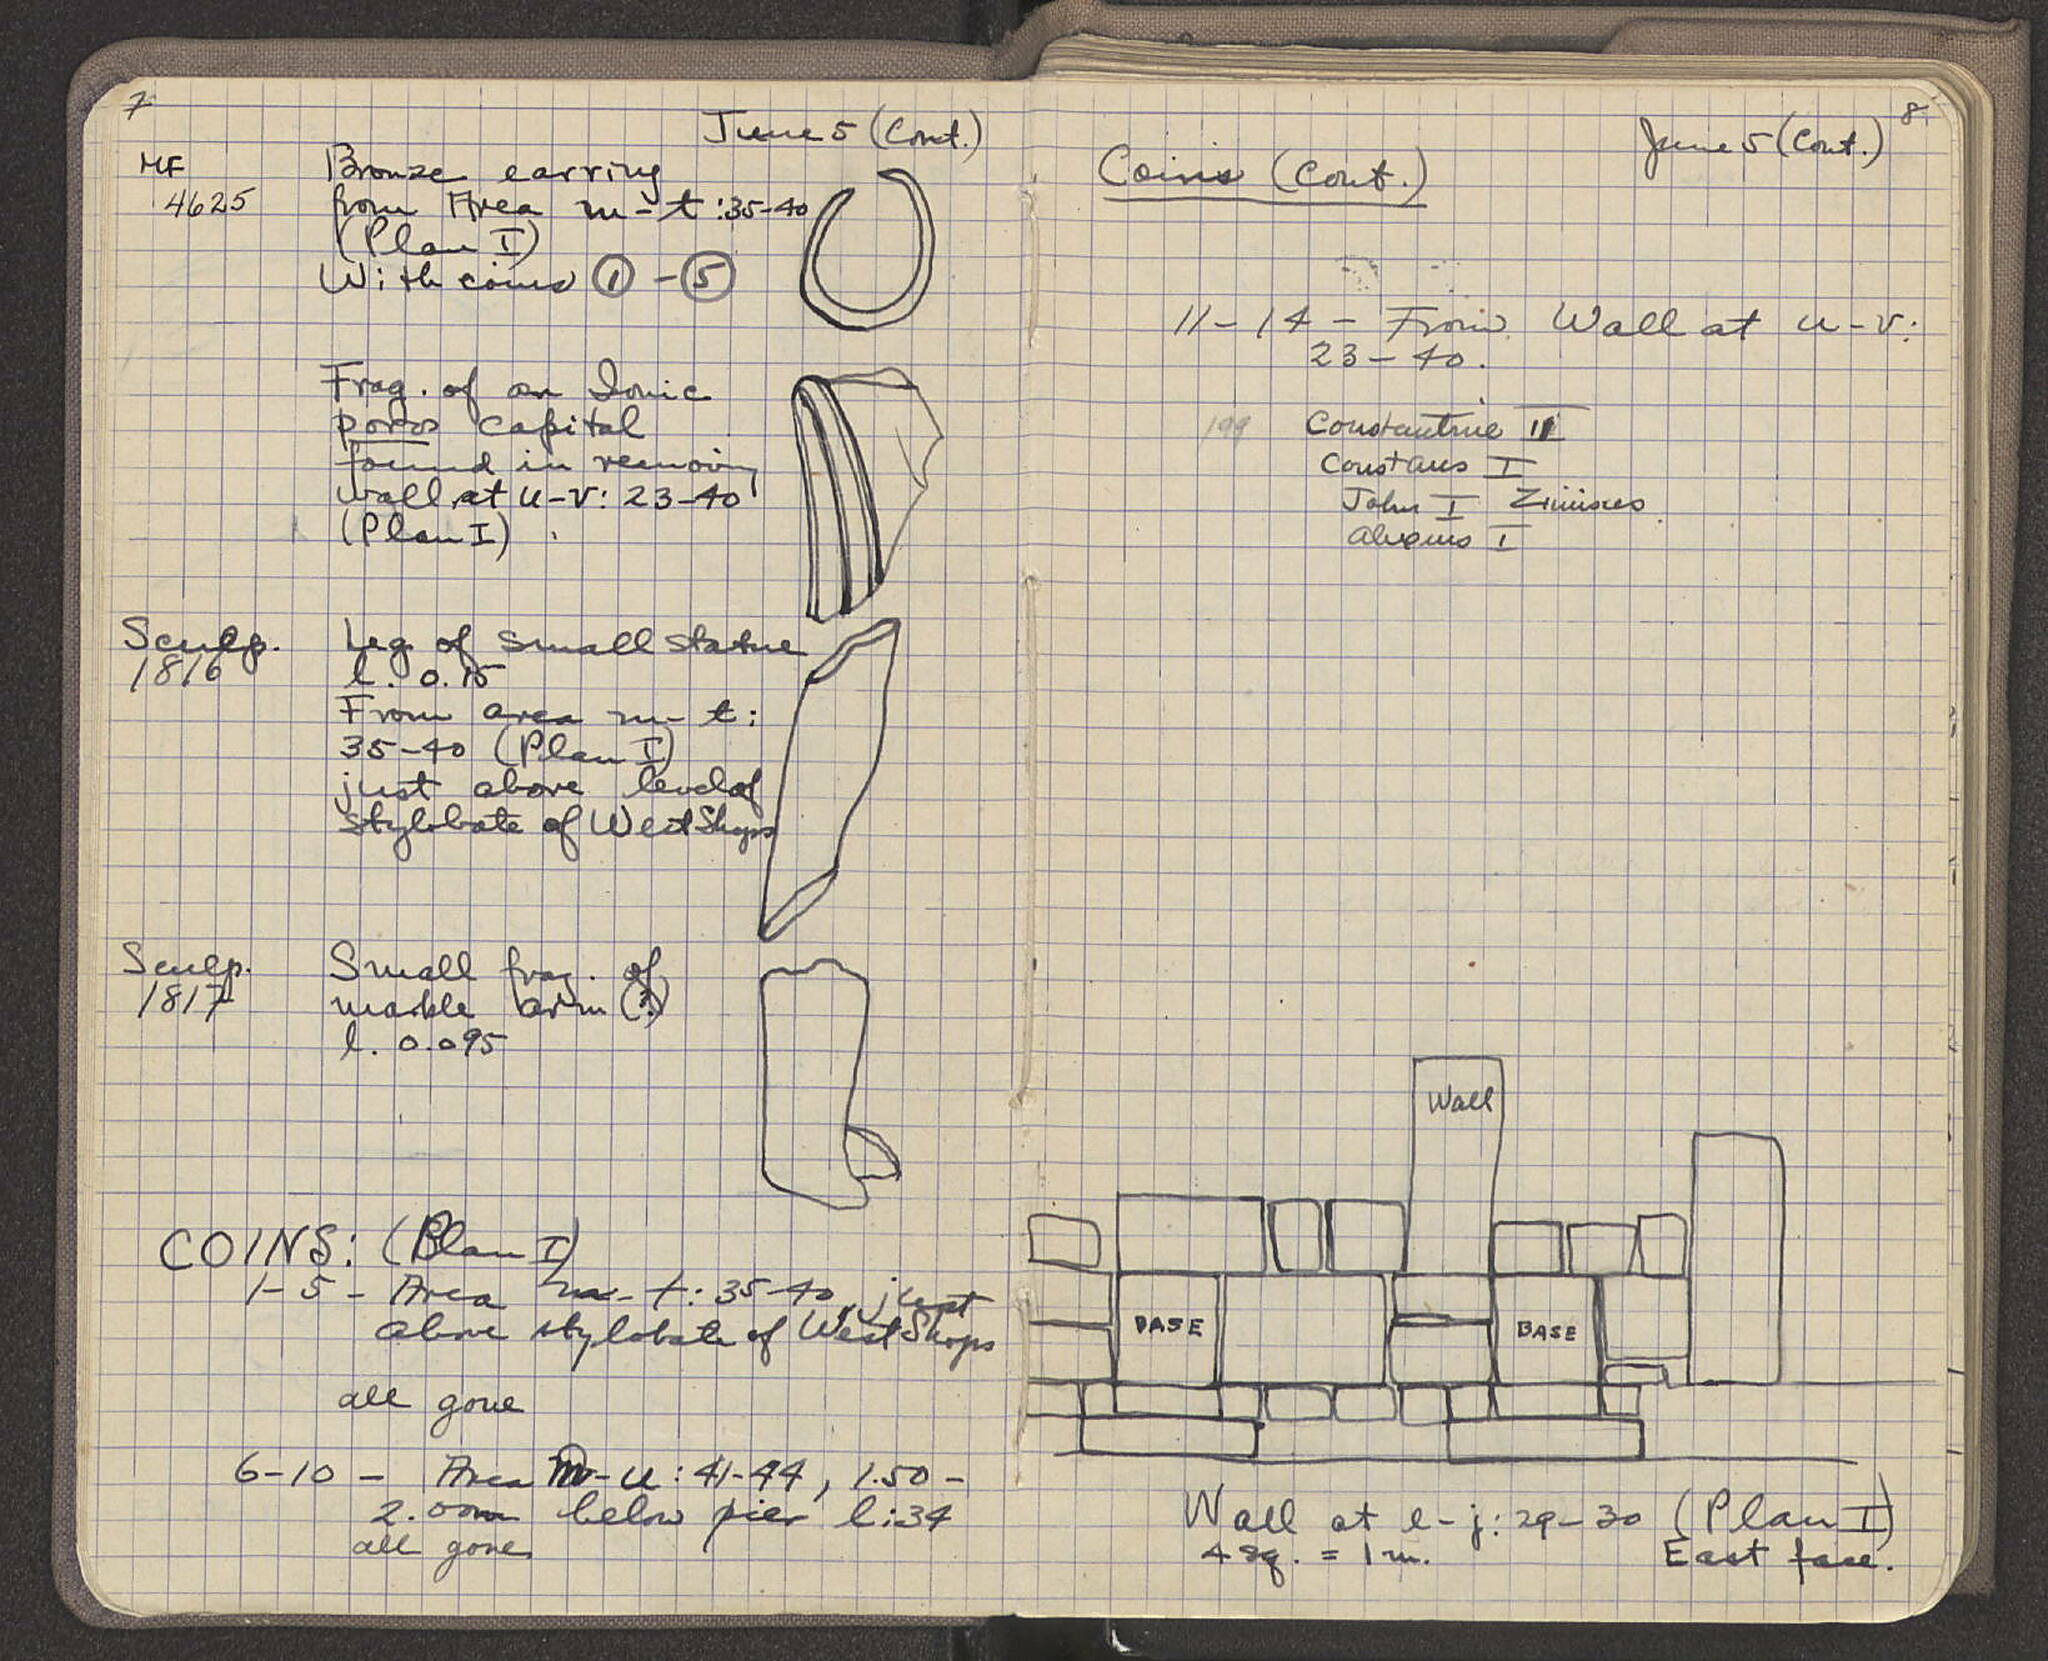 7
June 5 (Cont.)
MF
4625
Bronze earring
from Area m-t:35-40
(Plan I)
With coins ① - ⑤
Frag. of an Ionic
poros capital
found in removing
wall at u-v: 23-40
(Plan I)
Sculp.
1816
Leg of small statue
l. 0.15
From area m-t:
35-40 (Plan I)
just above level of
stylobate of West Shops
Sculp.
1817
Small frag. of
marble arm (?)
l. 0.095
COINS: (Plan I)
1-5 - Area m-t: 35-40, just
above stylobate of West Shops
all gone
6-10 - Area m-u: 41-44, 1.50-
2.00m below pier l:34
all gone
8
June 5 (Cont.)
Coins (Cont.)
11-14 - From Wall at u-v:
23-40.
199
Constantine II
Constans I
John I Zimisces
Alexius I
Wall
BASE
BASE
Wall at e-j: 29-30 (Plan I)
4 sq. = 1 m.
East face.